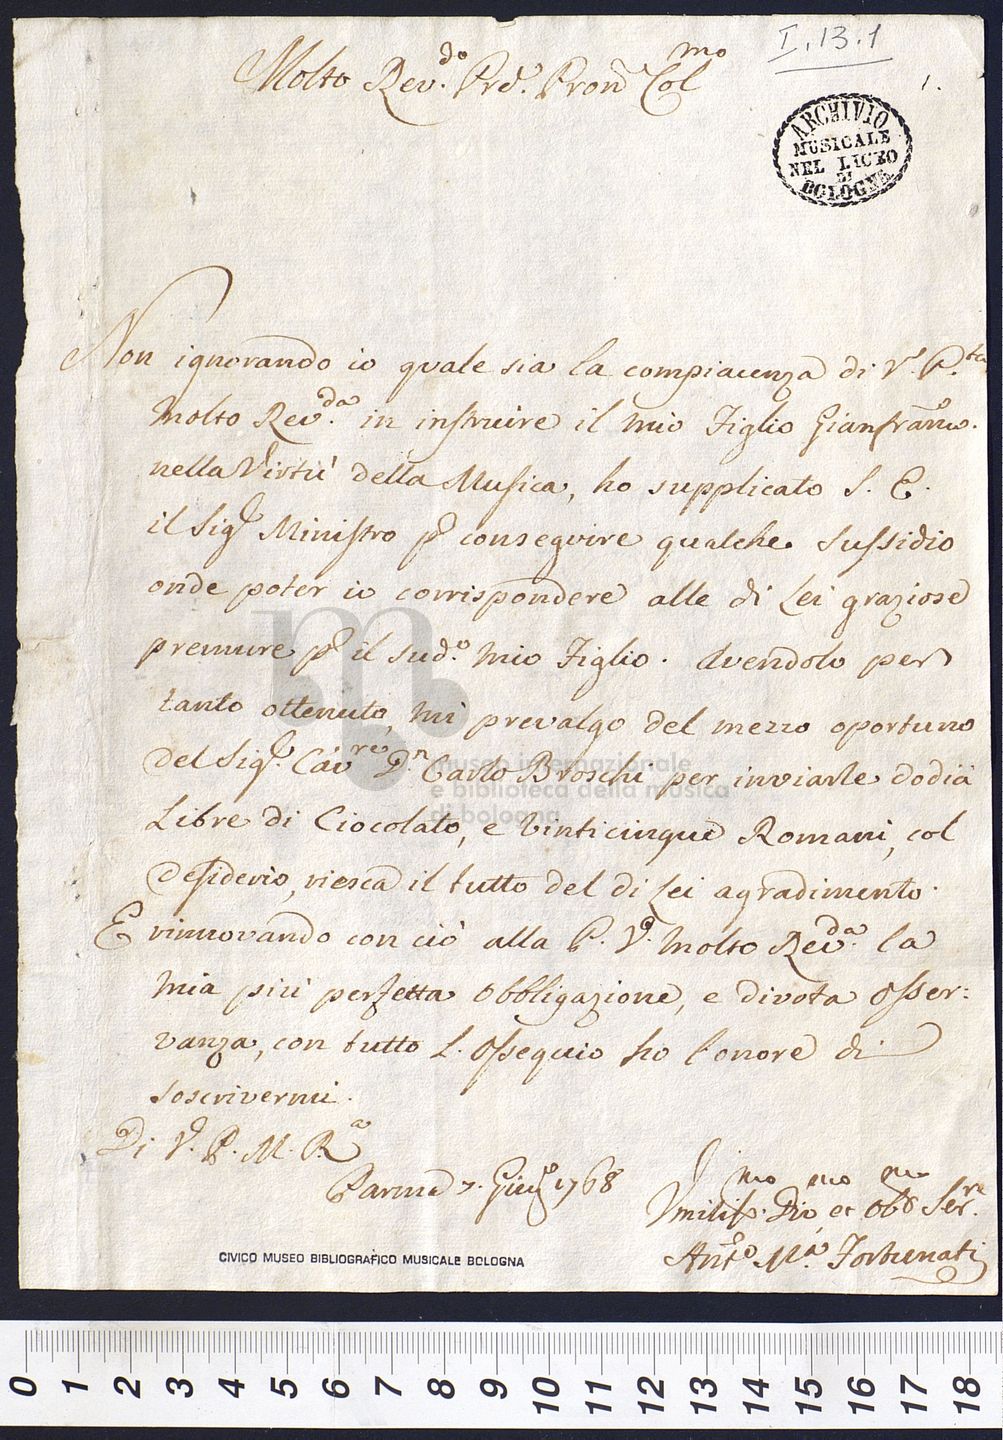 I.13.1
Molto Rev.do Prĕ. Pron Colmo
1.
ARCHIVIO
MUSICALE
NEL LICEO
DI
BOLOGNA
Non ignorando io quale sia la compiacenza di V. P.
Molto Rev.da in instruire il mio Figlio Gianfran.co
nella Virtù della Musica, ho supplicato S. E.
il Sig.r Ministro p conseguire qualche Sussidio
onde poter io corrispondere alle di Lei graziose
premure p il sud.o mio Figlio. Avendolo per
tanto ottenuto, mi prevalgo del mezzo oportuno
del Sig.r Cav.re D.n Carlo Broschi per inviarle dodici
Libre di Ciocolato, e Vinticinque Romani, col
desiderio, riesca il tutto del di Lei agradimento.
E rinnovando con ciò alla P. V. Molto Rev.da la
mia più perfetta Obbligazione, e divota Osser:
vanza, con tutto l'Ossequio ho l'onore di
soscrivermi.
Di V. P. M. R.a
Parma 7. Giug.o 1768
Umiliss.mo Div.mo et Obb.mo Ser.re
Ant.o M.a Fortunati
CIVICO MUSEO BIBLIOGRAFICO MUSICALE BOLOGNA
museo internazionale
e biblioteca della musica
di bologna
0 1 2 3 4 5 6 7 8 9 10 11 12 13 14 15 16 17 18